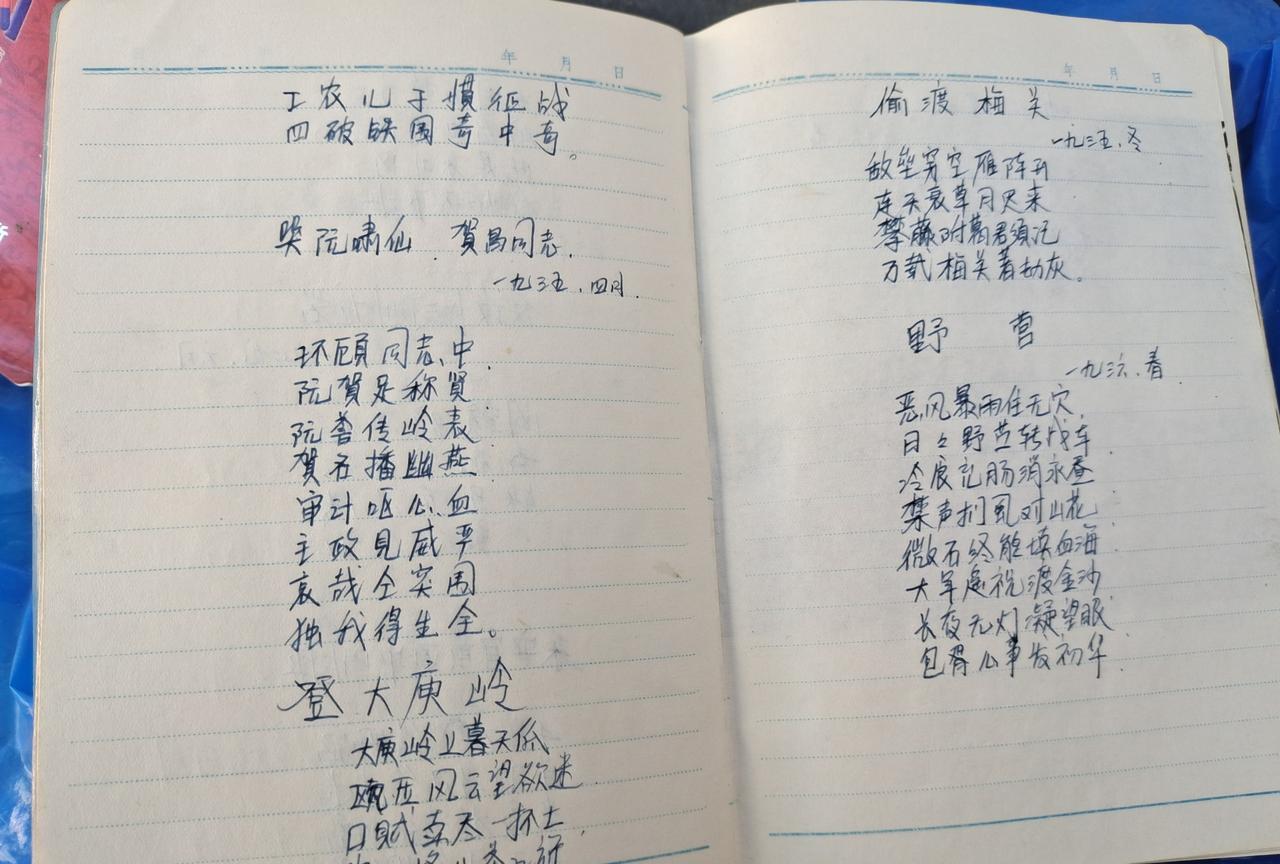 年 月 日
工农儿子惯征战
四破铁围奇中奇。
哭阮啸仙.贺昌同志.
一九三五.四月.
环顾同志中
阮贺足称贤
阮誉传岭表
贺名播幽燕
审计呕心血
主政见威严
哀哉仝突围
独我得生全。
登大庾岭
大庾岭上暮天低
欧亚风云望欲迷
日贼卖尽一抔土
年 月 日
偷渡梅关
一九三五.冬
敌垒穿空雁阵开
连天衰草月迟来
攀藤附葛君须记
万载梅关著劫灰。
野 营
一九三六.春
恶风暴雨住无穴
日々野营转战车
冷食充肠消永昼
禁声扪虱对山花
微石终能填血海
大军遥祝渡金沙
长夜无灯凝望眼
包胥心事发初华